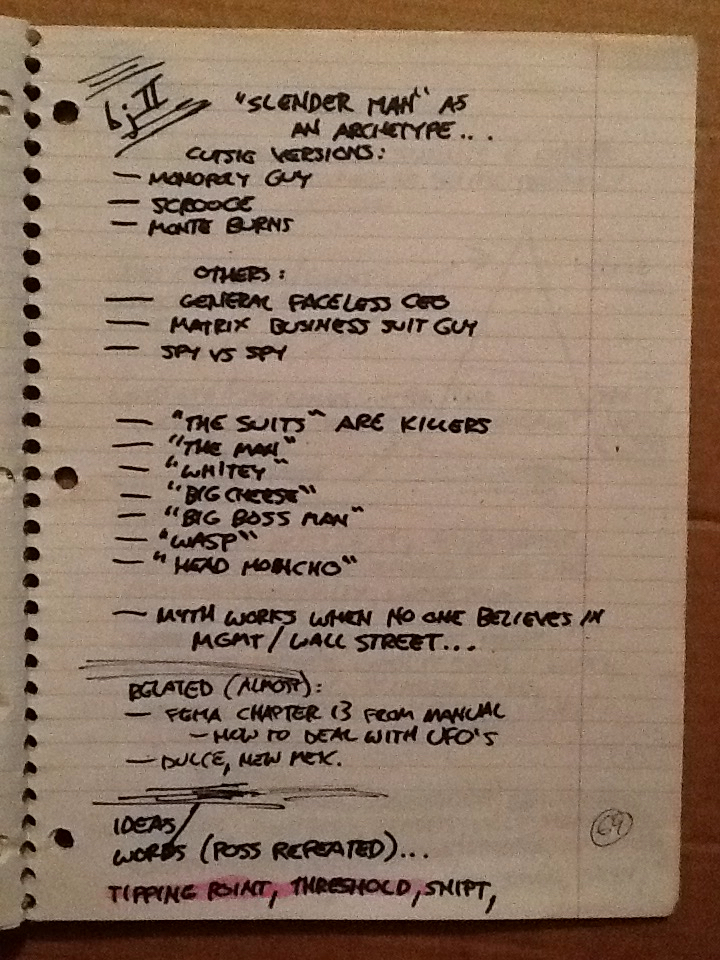 bj II
"SLENDER MAN" AS
AN ARCHETYPE...
CUTSIE VERSIONS:
— MONOPOLY GUY
— SCROOGE
— MONTE BURNS
OTHERS:
— GENERAL FACELESS CEO
— MATRIX BUSINESS SUIT GUY
— SPY VS SPY
— "THE SUITS" ARE KILLERS
— "THE MAN"
— "WHITEY"
— "BIG CHEESE"
— "BIG BOSS MAN"
— "WASP"
— "HEAD HONCHO"
— MYTH WORKS WHEN NO ONE BELIEVES IN
MGMT/WALL STREET...
RELATED (ALMOST):
— FEMA CHAPTER 13 FROM MANUAL
— HOW TO DEAL WITH UFO'S
— DULCE, NEW MEX.
IDEAS/
WORDS (POSS REPEATED)...
69
TIPPING POINT, THRESHOLD, SHIFT,